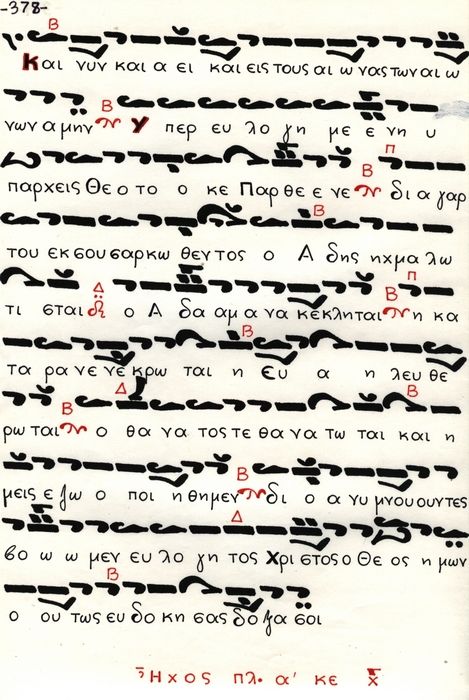 -378-
Και νυν και α ει και εις τους αι ω νας των αι ω
νων α μην Υ περ ευ λο γη με ε νη υ
παρχεις Θε ο το ο κε Παρ θε ε νε δι α γαρ
του εκ σου σαρκω θεν τος ο Α δης ηχμα λω
τι σται ο Α δα αμ α να κε κληται η κα
τα ρα νε νε κρω ται η Ευ α η λευ θε
ρω ται ο θα να τος τε θα να τω ται και η
μεις ε ζω ο ποι η θημεν δι ο α νυ μνουουντες
βο ω ω μεν ευ λο γη τος Χρι στος ο Θε ος η μων
ο ου τως ευ δο κη σας δο ζα σοι
Ἦχος πλ. α' κε